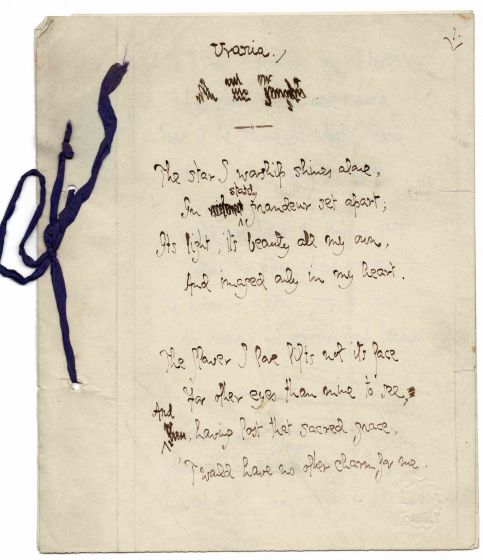 Urania.,
The star I worship shines alone,
In stately grandeur set apart;
Its light, its beauty all my own,
And imaged only in my heart.
The flower I love lifts not its face
For other eyes than mine to see,
And, having lost that sacred grace,
'T would have no other charm for me.